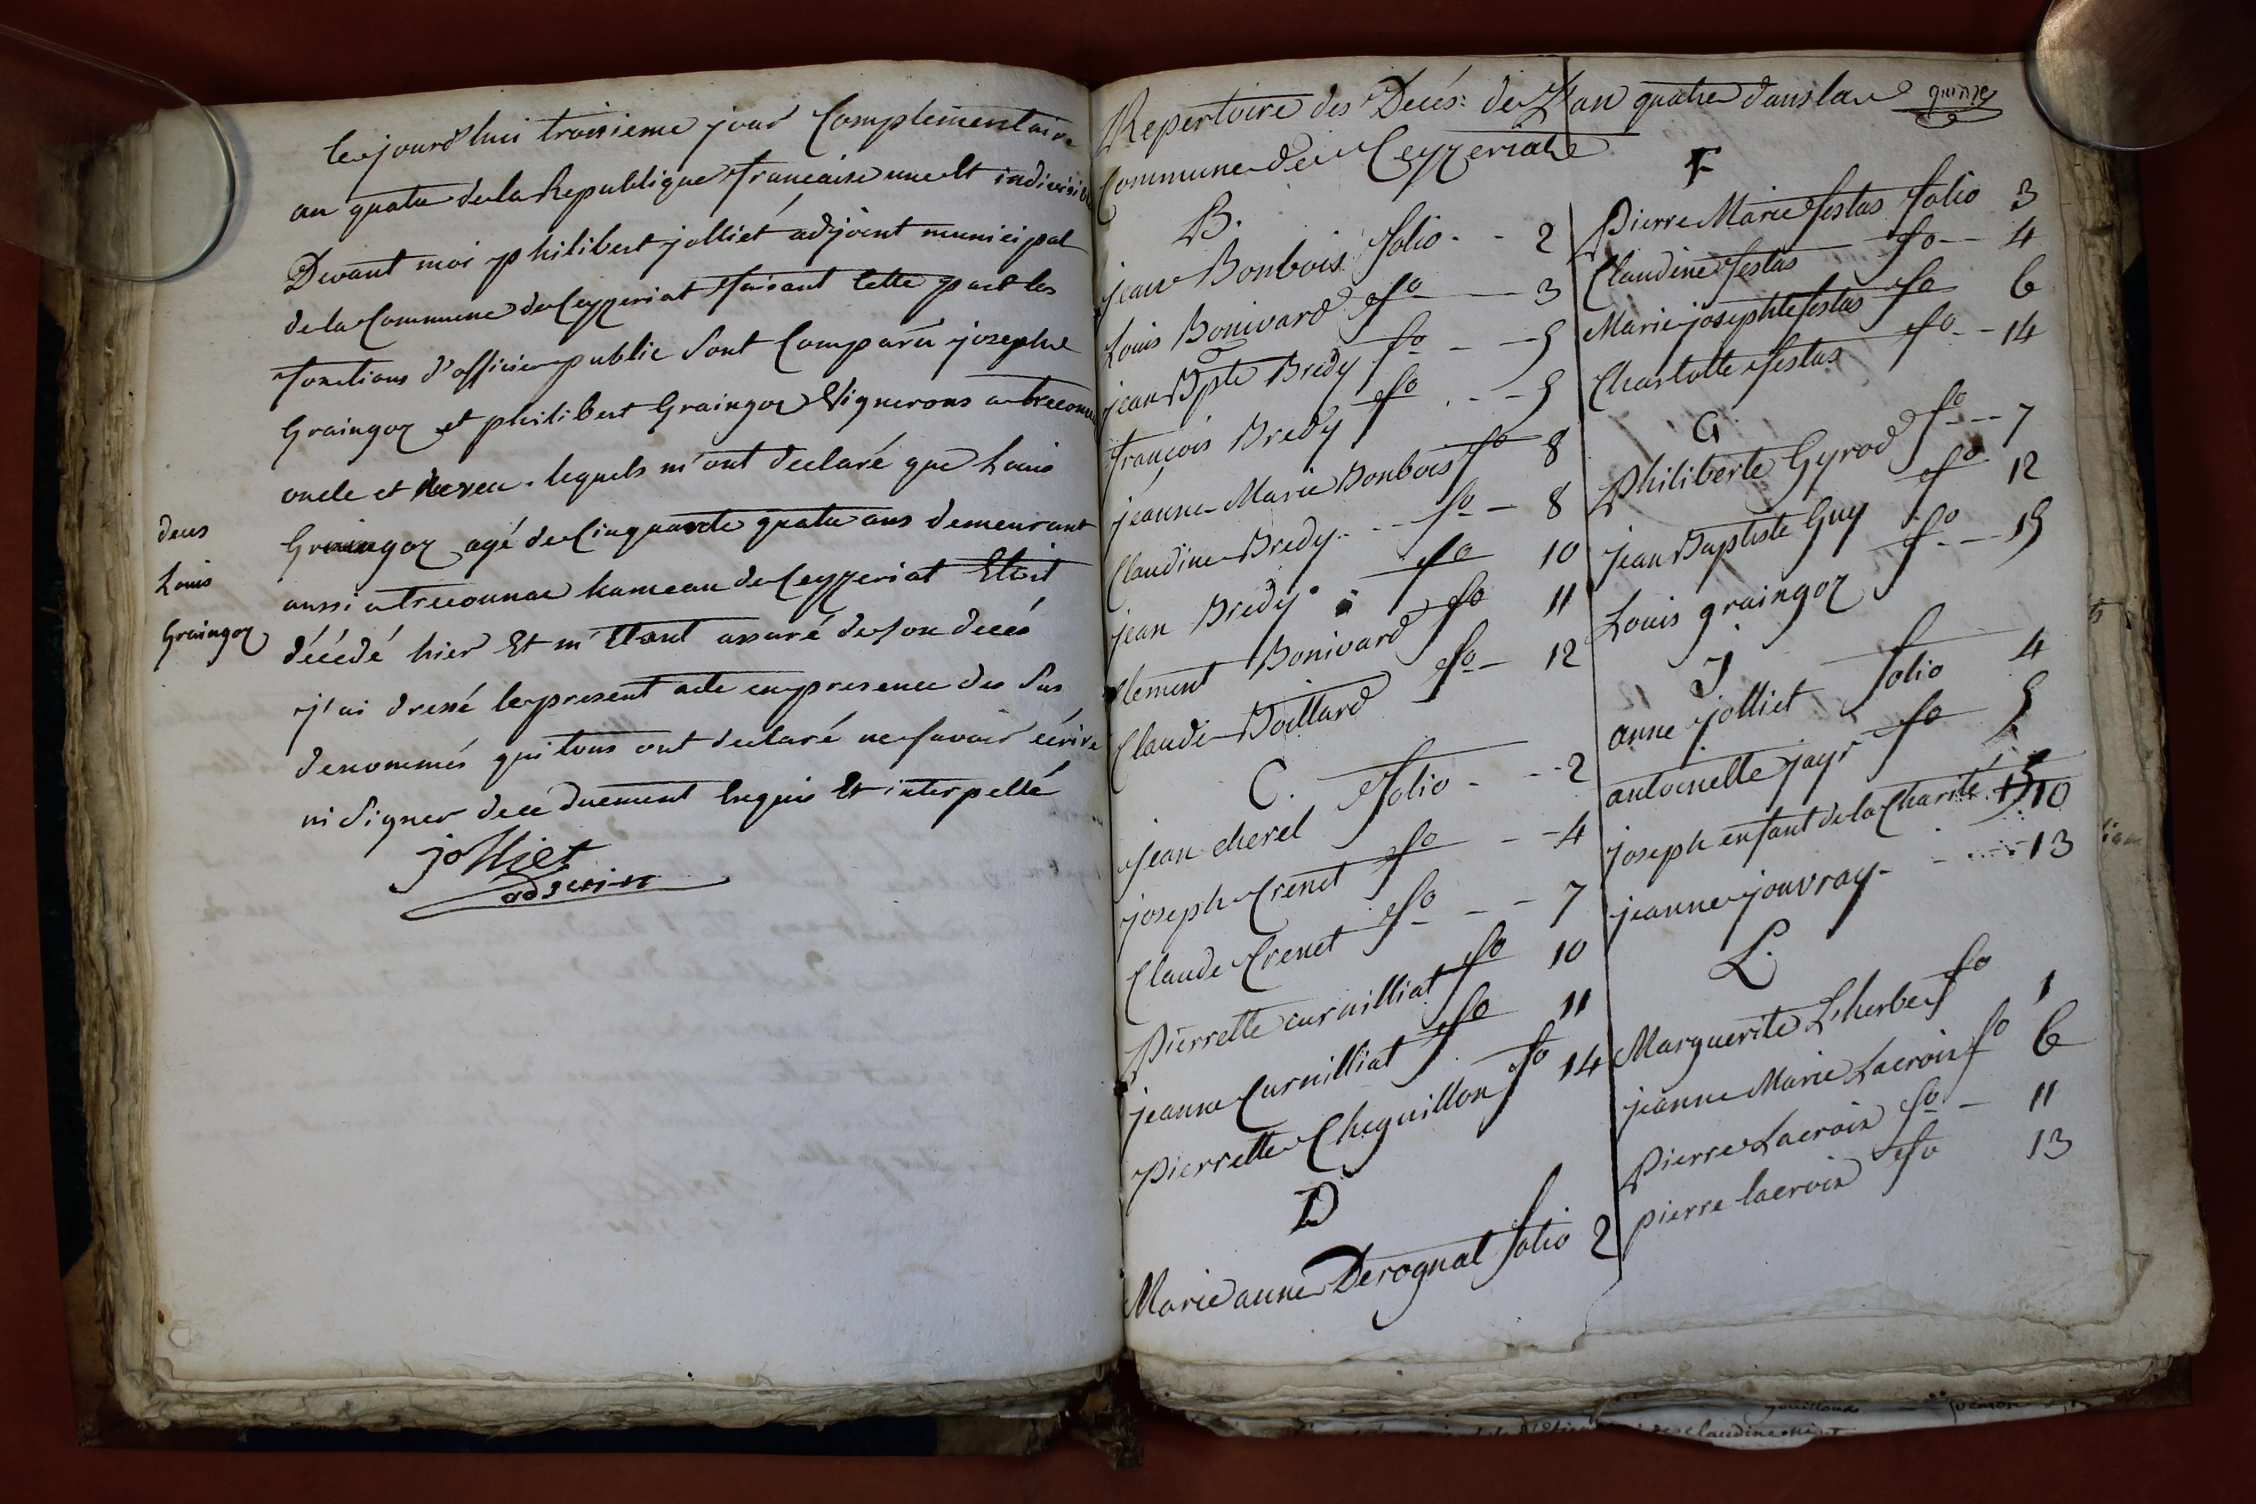 Cejourd'hui troisieme jour Complementaire
an quatre de la Republique francaise une et indivisible
Devant moi philibert jolliet adjoint municipal
de la Commune de Ceyzeriat faisant cette part les
fonctions d'officier public sont Comparu josephe
Graingoz et philibert Graingoz Vignerons a treconna
oncle et neveu. lequels m'ont declaré que Louis
Graingoz agé de Cinquante quatre ans demeurant
aussi a treconnac hameau de Ceyzeriat Etoit
décédé hier Et m'Etant assuré de son decés
j'ai dressé le present acte en presence des sus
denommés qui tous ont declaré ne savoir écrire
ni signer de ce duement Enquis Et interpellé
jolliet
adjoint
deces
Louis
Graingoz
Repertoire des Decés: de L'an quatre dans la
Commune de Ceyzeriat
quinze
B.
jean Bonbois folio - - 2
Louis Bonivard fo 3
jean Bpte Bredy fo - - 5
françois Bredy fo . - - 5
jeanne Marie Bonbois fo 8
Claudine Bredy - - fo - 8
jean Bredy fo 10
Clement Bonivard fo 11
Claude Boillard fo - 12
C.
jean cherel folio - - - 2
joseph Crenet fo - - 4
Claude Crenet fo - - - 7
Pierrette curnilliat fo 10
jeanne Curnilliat fo 11
pierrette Cheguillon fo 14
D
Marie anne Derognat folio 2
F
Pierre Marie festas folio 3
Claudine festas fo - - 4
Marie josephte festas fo 6
Charlotte festas fo - - 14
G
Philiberte Gyrod fo - - 7
jean Baptiste Guy fo 12
Louis graingoz fo - - 15
J
anne jolliet folio 4
antoinette jayr fo 5
joseph enfant de la Charité 10
jeanne jouvray - - 13
L.
Marguerite L'herbe fo 1
jeanne Marie Lacroix fo 6
Pierre Lacroix fo - 11
pierre lacroix fo 13